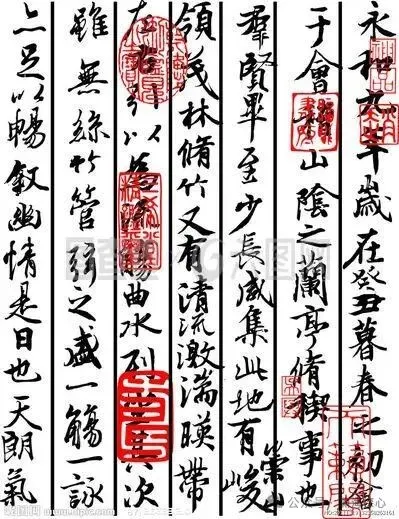 永和九年歲在癸丑暮春之初會
于會稽山陰之蘭亭脩禊事也
羣賢畢至少長咸集此地有崇山峻
領茂林脩竹又有清流激湍暎帶
左右引以為流觴曲水列坐其次
雖無絲竹管弦之盛一觴一詠
亦足以暢敘幽情是日也天朗氣